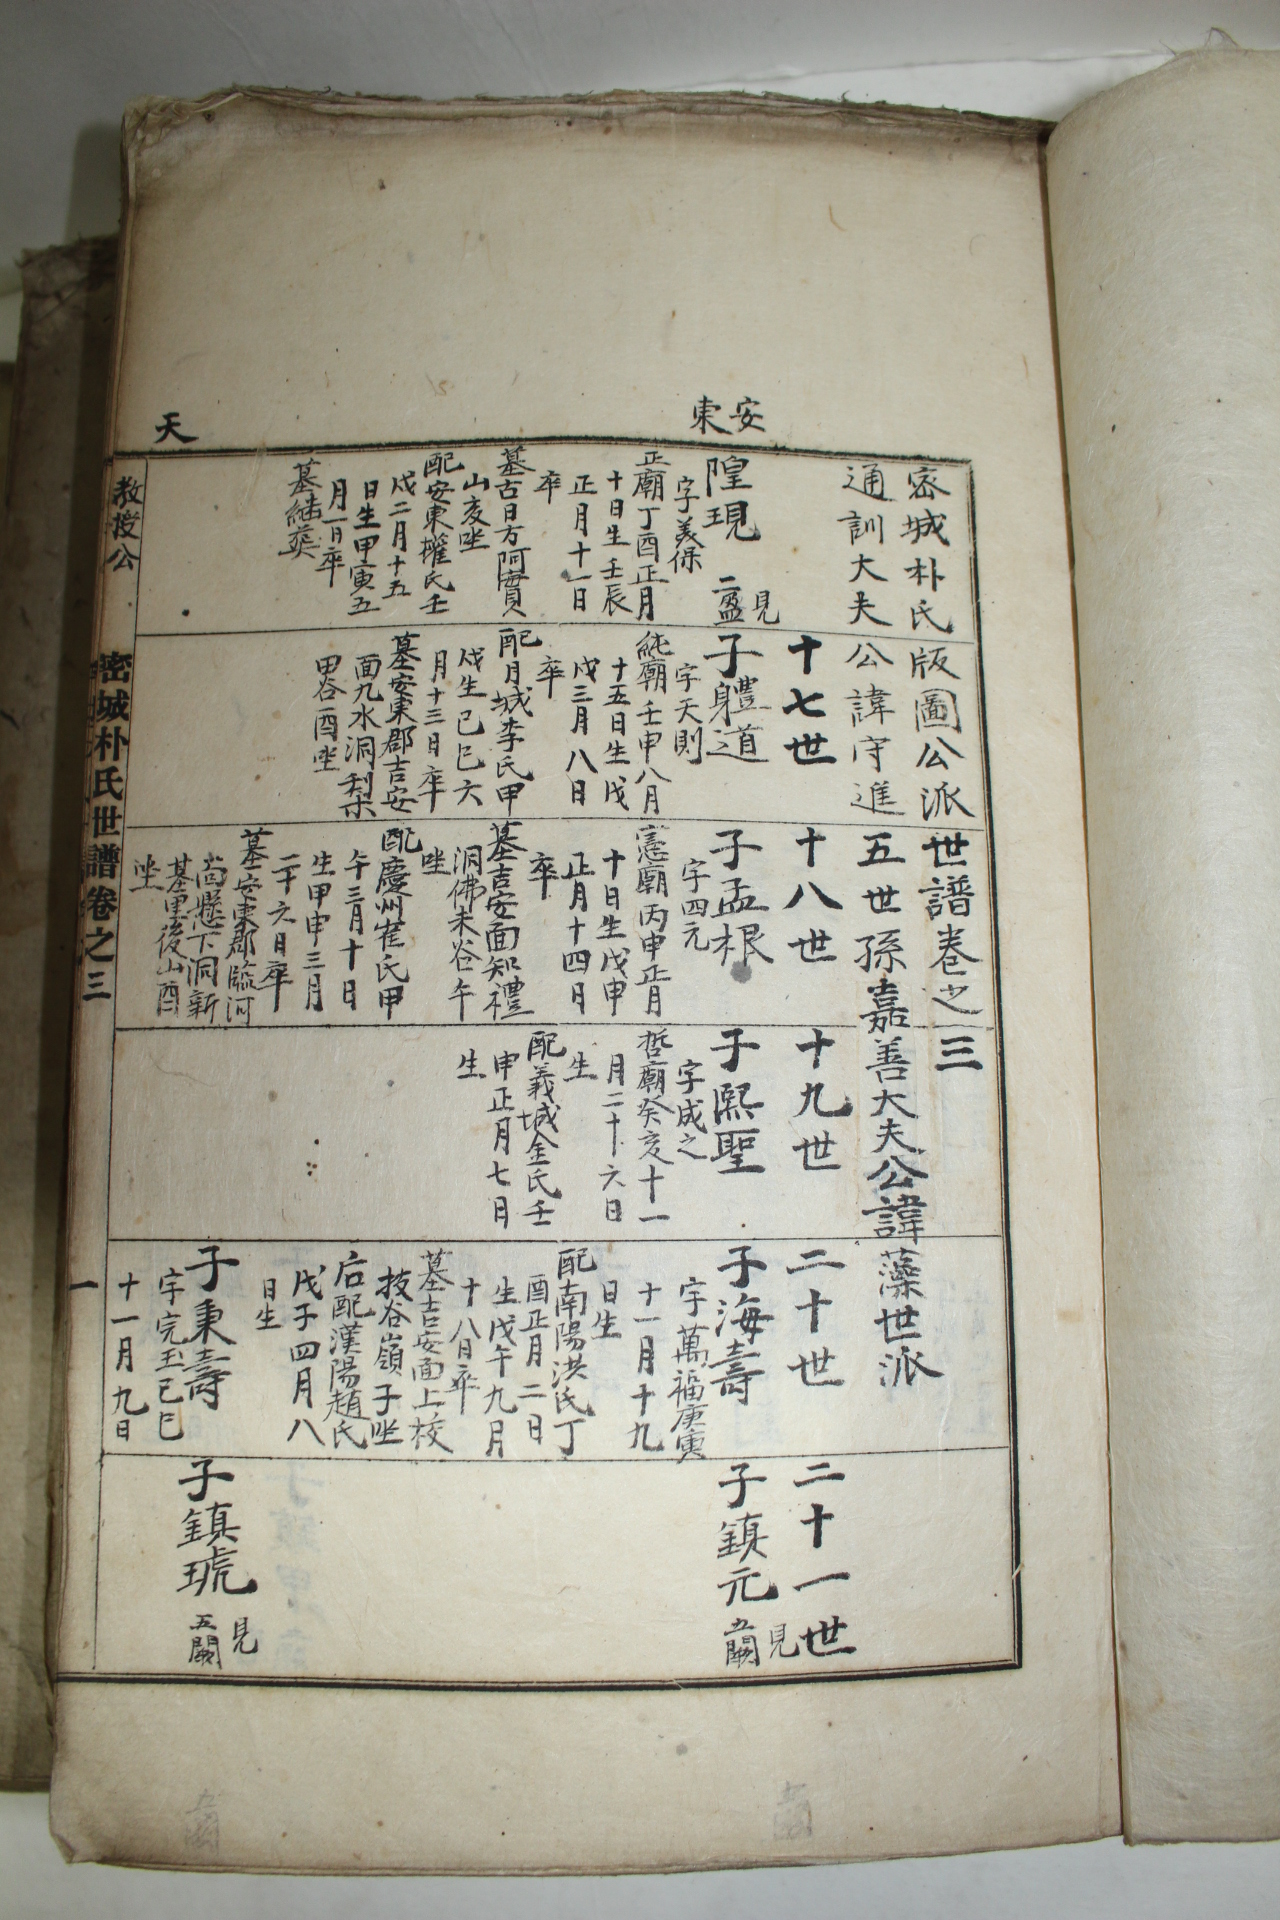 安東
天
密城朴氏版圖公派世譜卷之三
通訓大夫公諱守進五世孫嘉善大夫公諱藻世派
隍現
見
二盈
字義保
正廟丁酉正月
十日生壬辰
正月十一日
卒
墓古日方阿實
山亥坐
配安東權氏壬
戌二月十五
日生甲寅五
月一日卒
墓繼葬
十七世
子軆道
字天則
純廟壬申八月
十五日生戊
戌三月八日
卒
配月城李氏甲
戌生己巳六
月十三日卒
墓安東郡吉安
面九水洞梨
甲谷酉坐
十八世
子孟根
字四元
憲廟丙申正月
十日生戊申
正月十四日
卒
墓吉安面知禮
洞佛未谷午
坐
配慶州崔氏甲
午三月十日
生甲申三月
二十六日卒
墓安東郡臨河
面懸下洞新
基里後山酉
坐
十九世
子熙聖
字成之
哲廟癸亥十一
月二十六日
生
配義城金氏壬
申正月七日
生
二十世
子海壽
字萬福庚寅
十一月十九
日生
配南陽洪氏丁
酉正月二日
生戊午九月
十八日卒
墓吉安面上校
技谷嶺子坐
后配漢陽趙氏
戊子四月八
日生
子秉壽
字完玉己巳
十一月九日
二十一世
子鎮元
見
五闕
子鎮琥
見
五闕
教授公
密城朴氏世譜卷之三
一